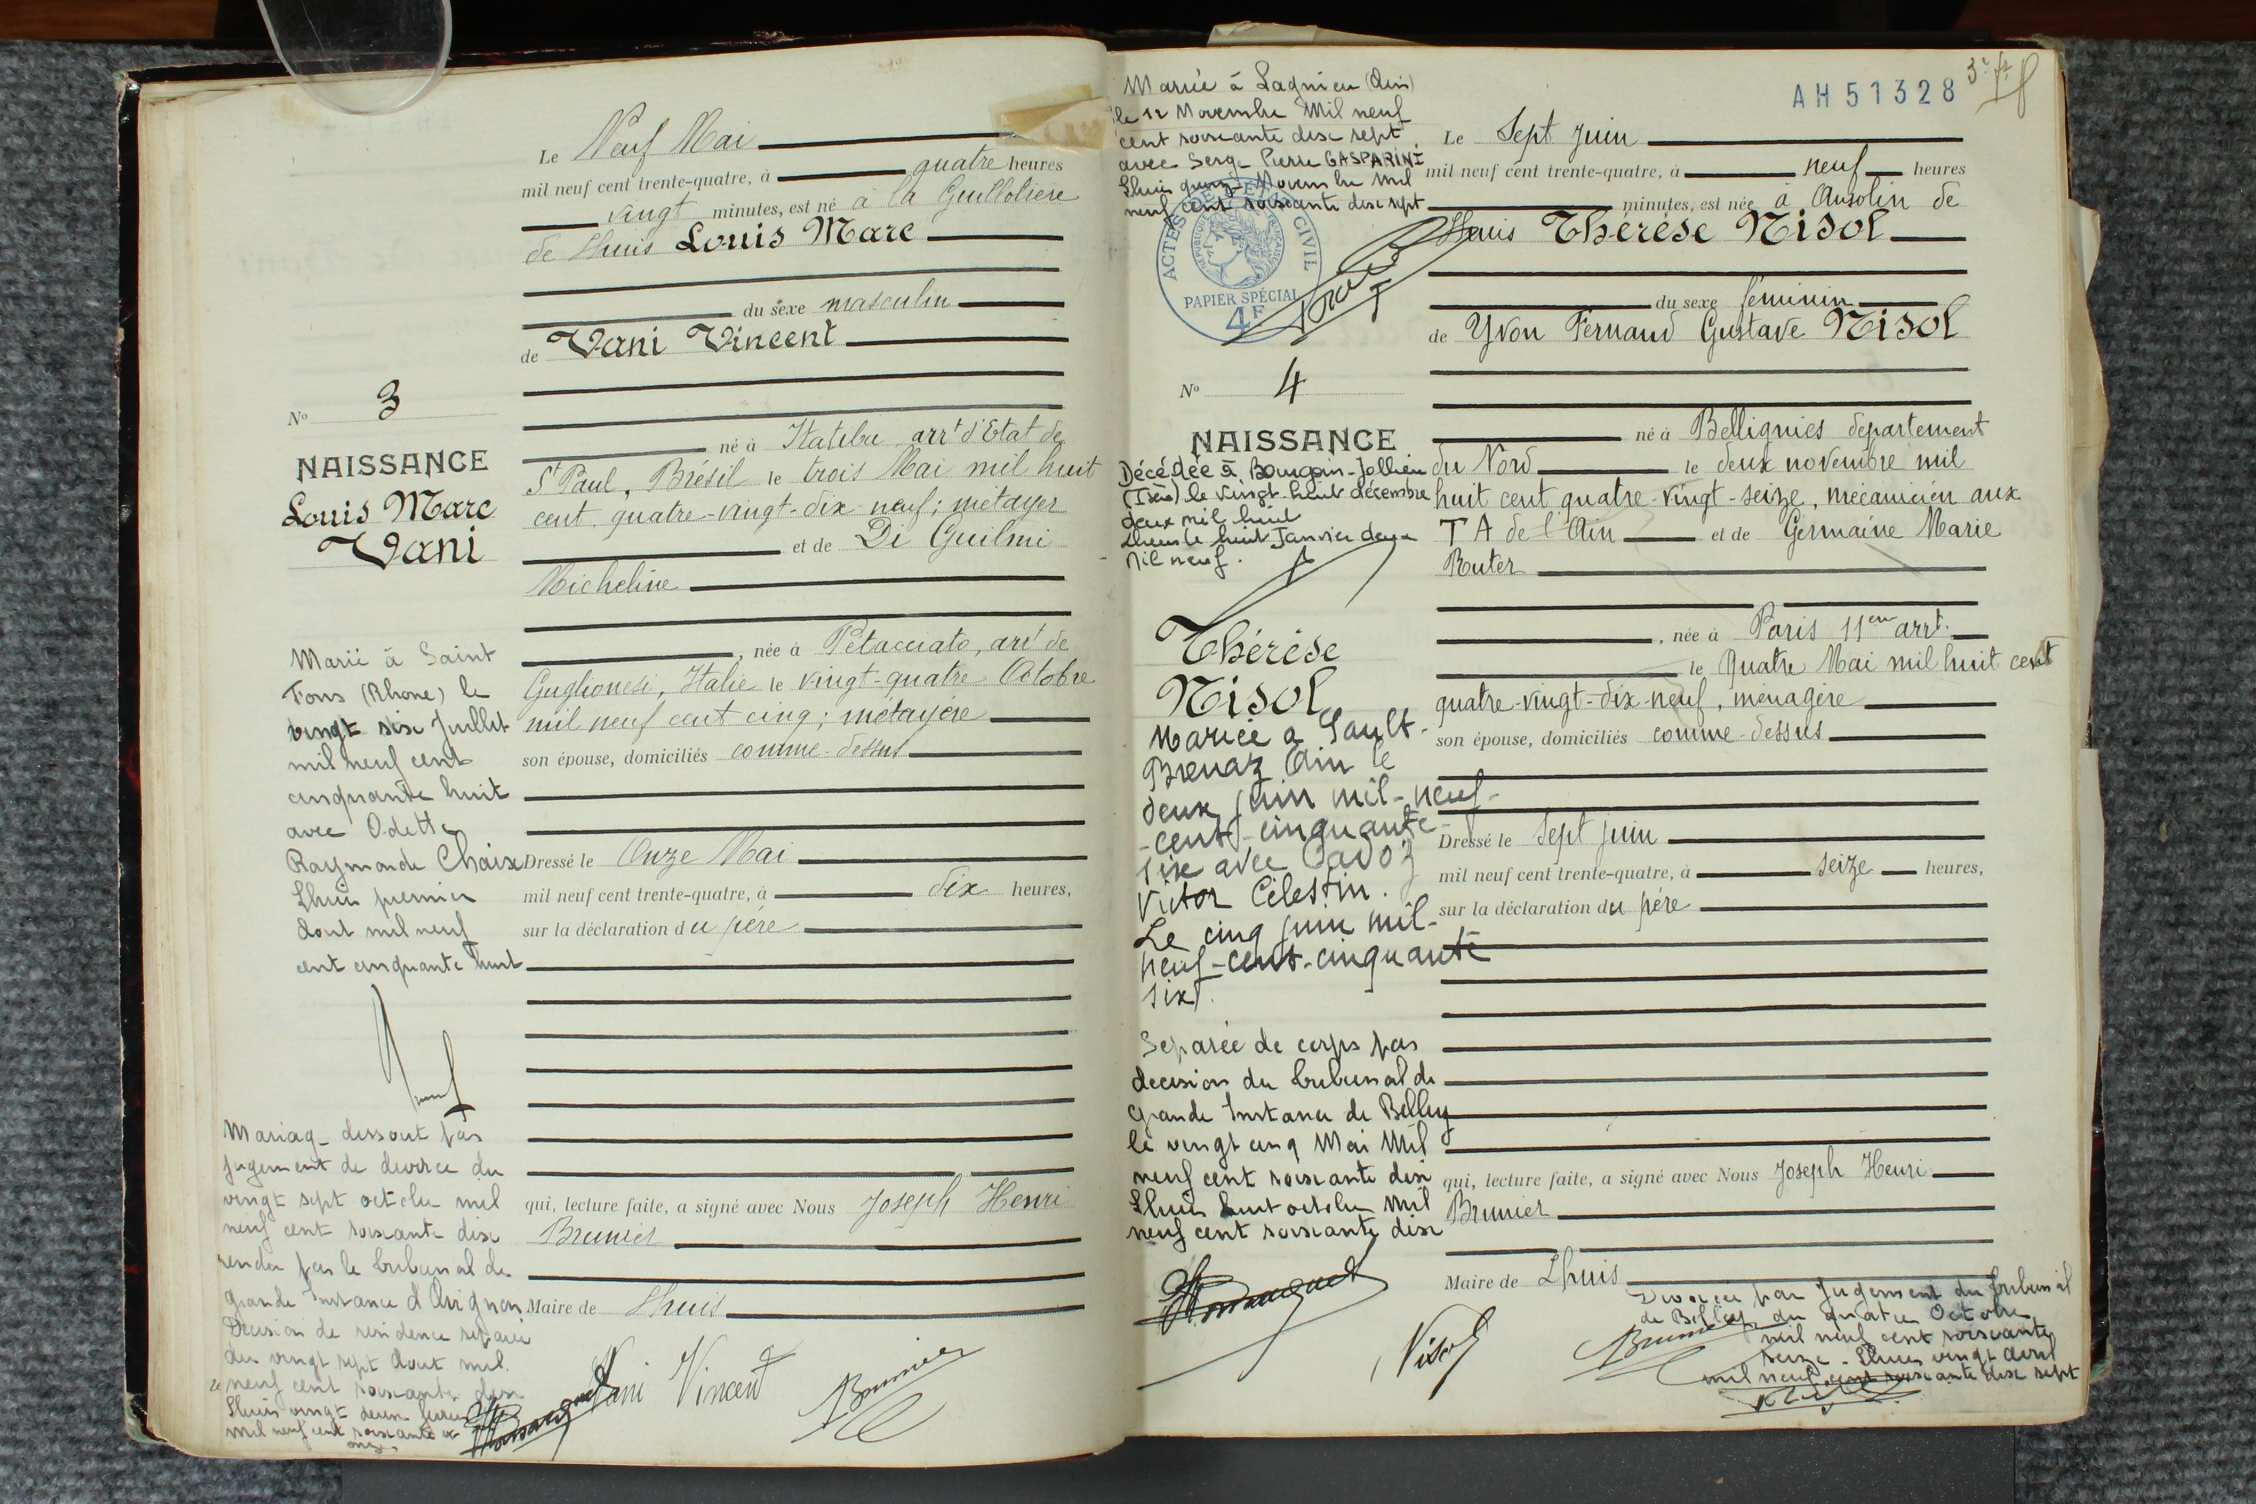 Le Neuf Mai
mil neuf cent trente-quatre, à quatre heures
vingt minutes, est né à la Guillotière
de Lhuis Louis Marc
du sexe masculin
de Vani Vincent
né à Itatiba arrt d'Etat de
St Paul, Brésil le trois Mai mil huit
cent quatre-vingt-dix-neuf; métayer
et de Di Guilmi
Micheline
, née à Petacciato, arrt de
Guglionesi, Italie le vingt-quatre Octobre
mil neuf cent cinq; métayère
son épouse, domiciliés comme dessus
Dressé le Onze Mai
mil neuf cent trente-quatre, à dix heures,
sur la déclaration du père
qui, lecture faite, a signé avec Nous Joseph Henri
Brunier
Maire de Lhuis
Vani Vincent
Brunier
No 3
NAISSANCE
Louis Marc
Vani
Marié à Saint
Fons (Rhône) le
vingt six Juillet
mil neuf cent
cinquante huit
avec Odette
Raymonde Chaix
Lhuis premier
Aout mil neuf
cent cinquante huit
Mariage dissout par
jugement de divorce du
vingt sept octobre mil
neuf cent soixante dix
rendu par le tribunal de
grande Instance d'Avignon
Décision de résidence séparée
du vingt sept Aout mil
neuf cent soixante dix
Lhuis vingt deux
mil neuf cent soixante et
onze.
AH51328
Mariée à Lagnieu (Ain)
le 12 Novembre Mil neuf
cent soixante dix sept
avec Serge Pierre GASPARINI
Lhuis quinze Novembre Mil
neuf cent soixante dix sept
ACTES DE L'ETAT CIVIL
PAPIER SPÉCIAL
4F
No 4
NAISSANCE
Décédée à Bourgoin-Jallieu
(Isère) le vingt-huit décembre
deux mil huit
Lhuis le huit Janvier deux
Mil neuf.
Thérèse
Nisol
Mariée à Sault-
Brenaz Ain le
deux juin mil-neuf-
-cent-cinquante-
six avec Cadoz
Victor Célestin.
Le cinq juin mil-
neuf-cent-cinquante
six.
Séparée de corps par
decision du tribunal de
Grande Instance de Belley
le vingt cinq Mai Mil
neuf cent soixante dix
Lhuis huit octobre Mil
neuf cent soixante dix
Le Sept Juin
mil neuf cent trente-quatre, à neuf heures
minutes, est née à Ansolin de
Lhuis Thérèse Nisol
du sexe féminin
de Yvon Fernand Gustave Nisol
né à Bellignies département
du Nord le deux novembre mil
huit cent quatre-vingt-seize, mécanicien aux
T A de l'Ain et de Germaine Marie
Ruter
, née à Paris 11em arrt.
le Quatre Mai mil huit cent
quatre-vingt-dix-neuf, ménagère
son épouse, domiciliés comme dessus
Dressé le Sept juin
mil neuf cent trente-quatre, à seize heures,
sur la déclaration du père
qui, lecture faite, a signé avec Nous Joseph Henri
Brunier
Maire de Lhuis
Nisol
Brunier
Divorcée par Jugement du tribunal
de Belley du quatre Octobre
mil neuf cent soixante
seize. Lhuis vingt avril
mil neuf cent soixante dix sept